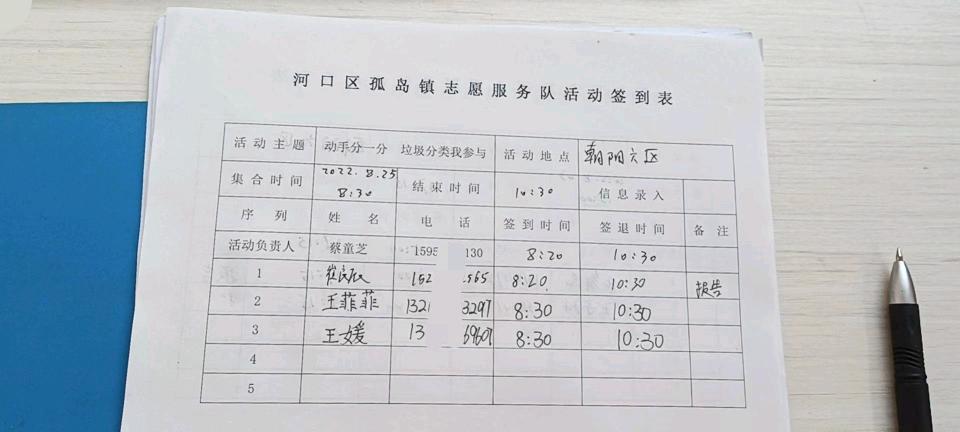 河口区孤岛镇志愿服务队活动签到表
活动主题 动手分一分 垃圾分类我参与 活动地点 朝阳六区
集合时间 2022.8.25 8:30 结束时间 10:30 信息录入
序列 姓名 电话 签到时间 签退时间 备注
活动负责人 蔡童芝 1595 130 8:20 10:30
1 152 565 8:20 10:30 报告
2 王菲菲 1321 3297 8:30 10:30
3 王媛 13 69607 8:30 10:30
4
5